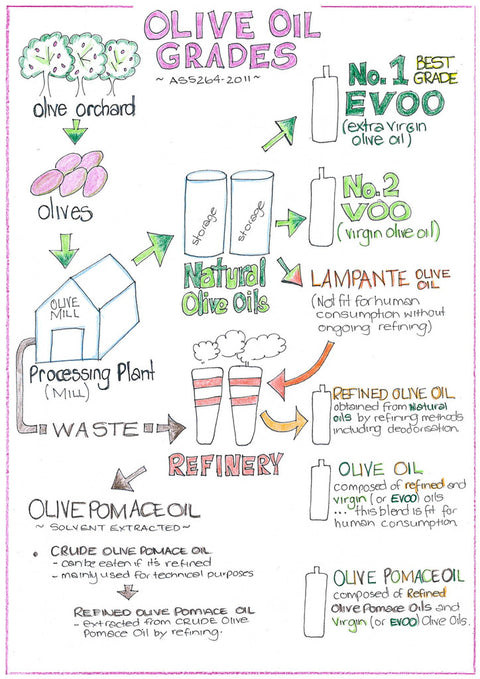 OLIVE OIL
GRADES
~ AS5264-2011 ~
olive orchard
olives
OLIVE
MILL
Processing Plant
(MILL)
WASTE
storage
storage
Natural
Olive Oils
No.1 BEST
GRADE
EVOO
(extra virgin
olive oil)
No.2
VOO
(virgin olive oil)
LAMPANTE OLIVE
OIL
(Not fit for human
consumption without
ongoing refining)
REFINERY
REFINED OLIVE OIL
obtained from Natural
oils by refining methods
including deodorisation.
OLIVE OIL
composed of refined and
virgin (or EVOO) oils
... this blend is fit for
human consumption.
OLIVE POMACE OIL
composed of Refined
Olive Pomace Oils and
Virgin (or EVOO) Olive Oils.
OLIVE POMACE OIL
~ SOLVENT EXTRACTED ~
• CRUDE OLIVE POMACE OIL
- can be eaten if it's refined
- mainly used for technical purposes
REFINED OLIVE POMACE OIL
- extracted from CRUDE Olive
Pomace Oil by refining.